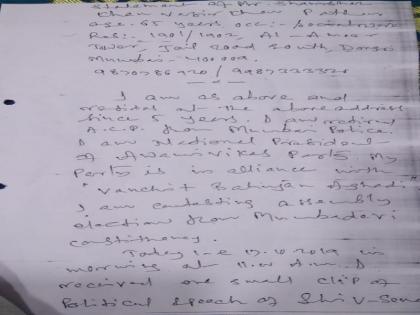 Statement of Mr. Shamsher
Khan Nazir Khan Pathan
age 65 years occ: Social work
Res: 1901/1902, Al-Amoor
Tower, Jail road South, Dongri
Mumbai - 400009.
I am as above and
resided at the above address
since 5 years. I am retired
A.C.P. from Mumbai Police.
I am National President
of Awami Vikas Party. My
Party is in alliance with
"Vanchit Bahujan Aghadi"
I am contesting assembly
election from Mumbadevi
constituency.
Today i.e 17.10.2019 in
morning at 11.00 A.M. I
received one small clip of
Political Speech of Shiv-Sen